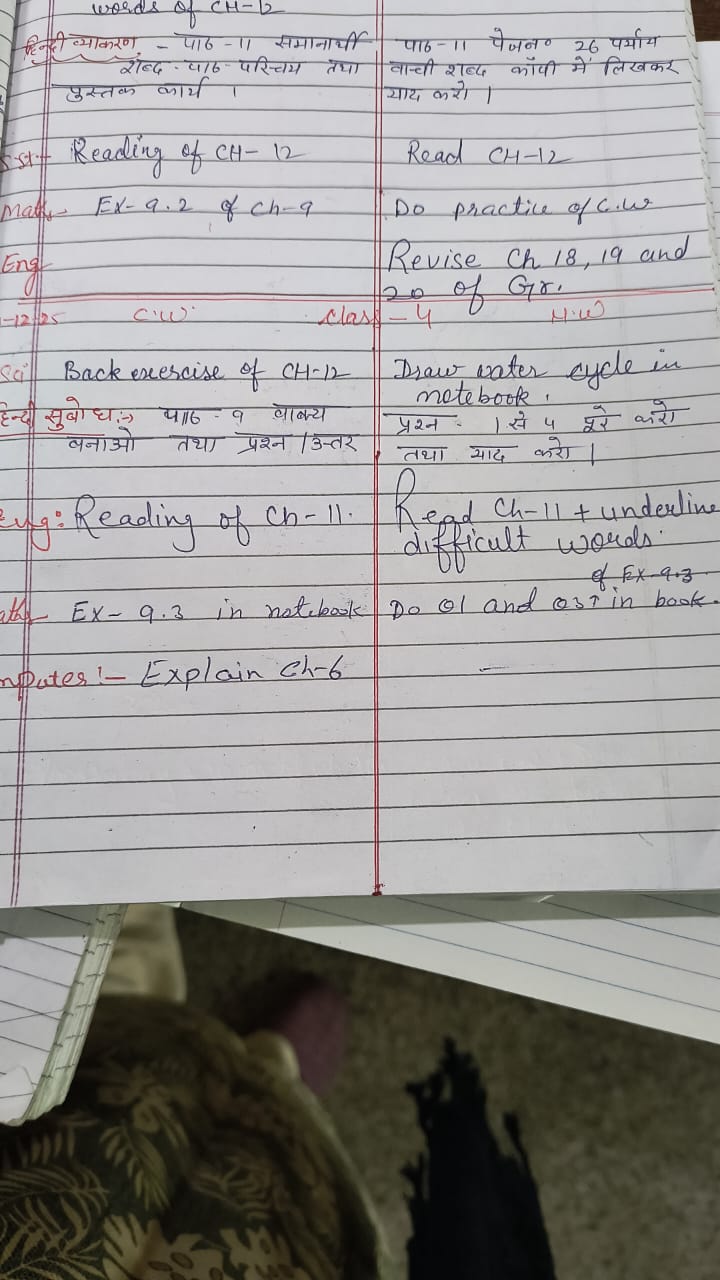 words of CH-12
हिन्दी व्याकरण - पाठ-11 समानार्थी
शब्द - पाठ-परिचय तथा
पुस्तक कार्य ।
पाठ-11 पेज न० 26 पर्याय
वाची शब्द कॉपी में लिखकर
याद करो ।
S.st- Reading of CH-12
Read CH-12
Math- Ex-9.2 of Ch-9
Do practice of C.W
Eng
Revise Ch 18, 19 and
20 of Gr.
-12-25 C.W. Class-4 H.W
Sci Back exercise of CH-12
Draw water cycle in
notebook.
हिन्दी सुबोध:-> पाठ-9 वाक्य
बनाओ तथा प्रश्न/उत्तर
प्रश्न - 1 से 4 पूरे करो
तथा याद करो ।
Eng: Reading of Ch-11.
Read Ch-11 + underline
difficult words.
ath- Ex-9.3 in notebook
of Ex-9.3
Do Q1 and Q3 in book.
mputer:- Explain Ch-6
—